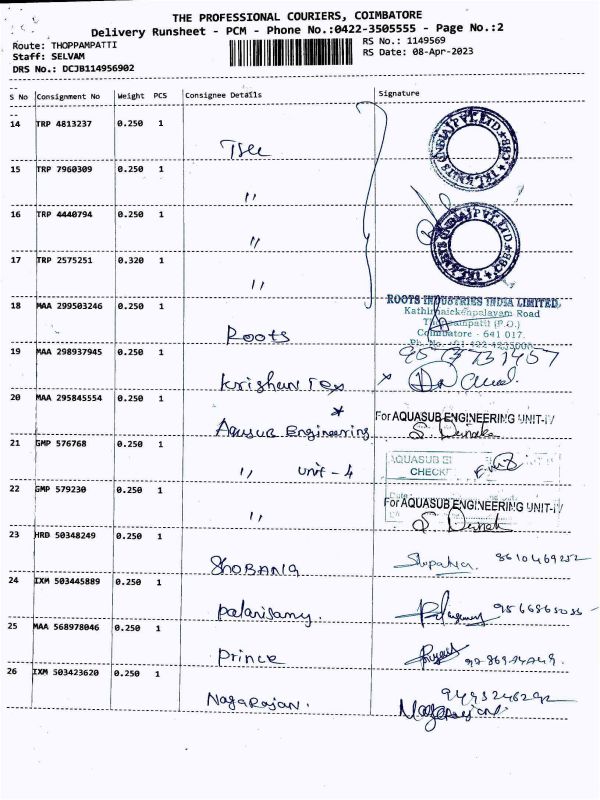 THE PROFESSIONAL COURIERS, COIMBATORE
Delivery Runsheet - PCM - Phone No.:0422-3505555 - Page No.:2
Route: THOPPAMPATTI
RS No.: 1149569
Staff: SELVAM
RS Date: 08-Apr-2023
DRS No.: DCJB114956902
S No Consignment No Weight PCS Consignee Details Signature
14 TRP 4813237 0.250 1
15 TRP 7960309 0.250 1 "
16 TRP 4440794 0.250 1 "
17 TRP 2575251 0.320 1 "
18 MAA 299503246 0.250 1 Roots
ROOTS INDUSTRIES INDIA LIMITED
Kathirnaickenpalayam Road
Thoppampatti (P.O.)
Coimbatore - 641 017.
19 MAA 298937945 0.250 1 Krishna Tex
20 MAA 295845554 0.250 1 Aquasub Engineering
For AQUASUB ENGINEERING UNIT-IV
21 GMP 576768 0.250 1 " Unit - 4
AQUASUB
CHECK
22 GMP 579230 0.250 1 "
For AQUASUB ENGINEERING UNIT-IV
23 HRD 50348249 0.250 1 SHOBANA
24 IXM 503445889 0.250 1 Palanisamy
25 MAA 568978046 0.250 1 Prince
26 IXM 503423620 0.250 1 Nagarajan.